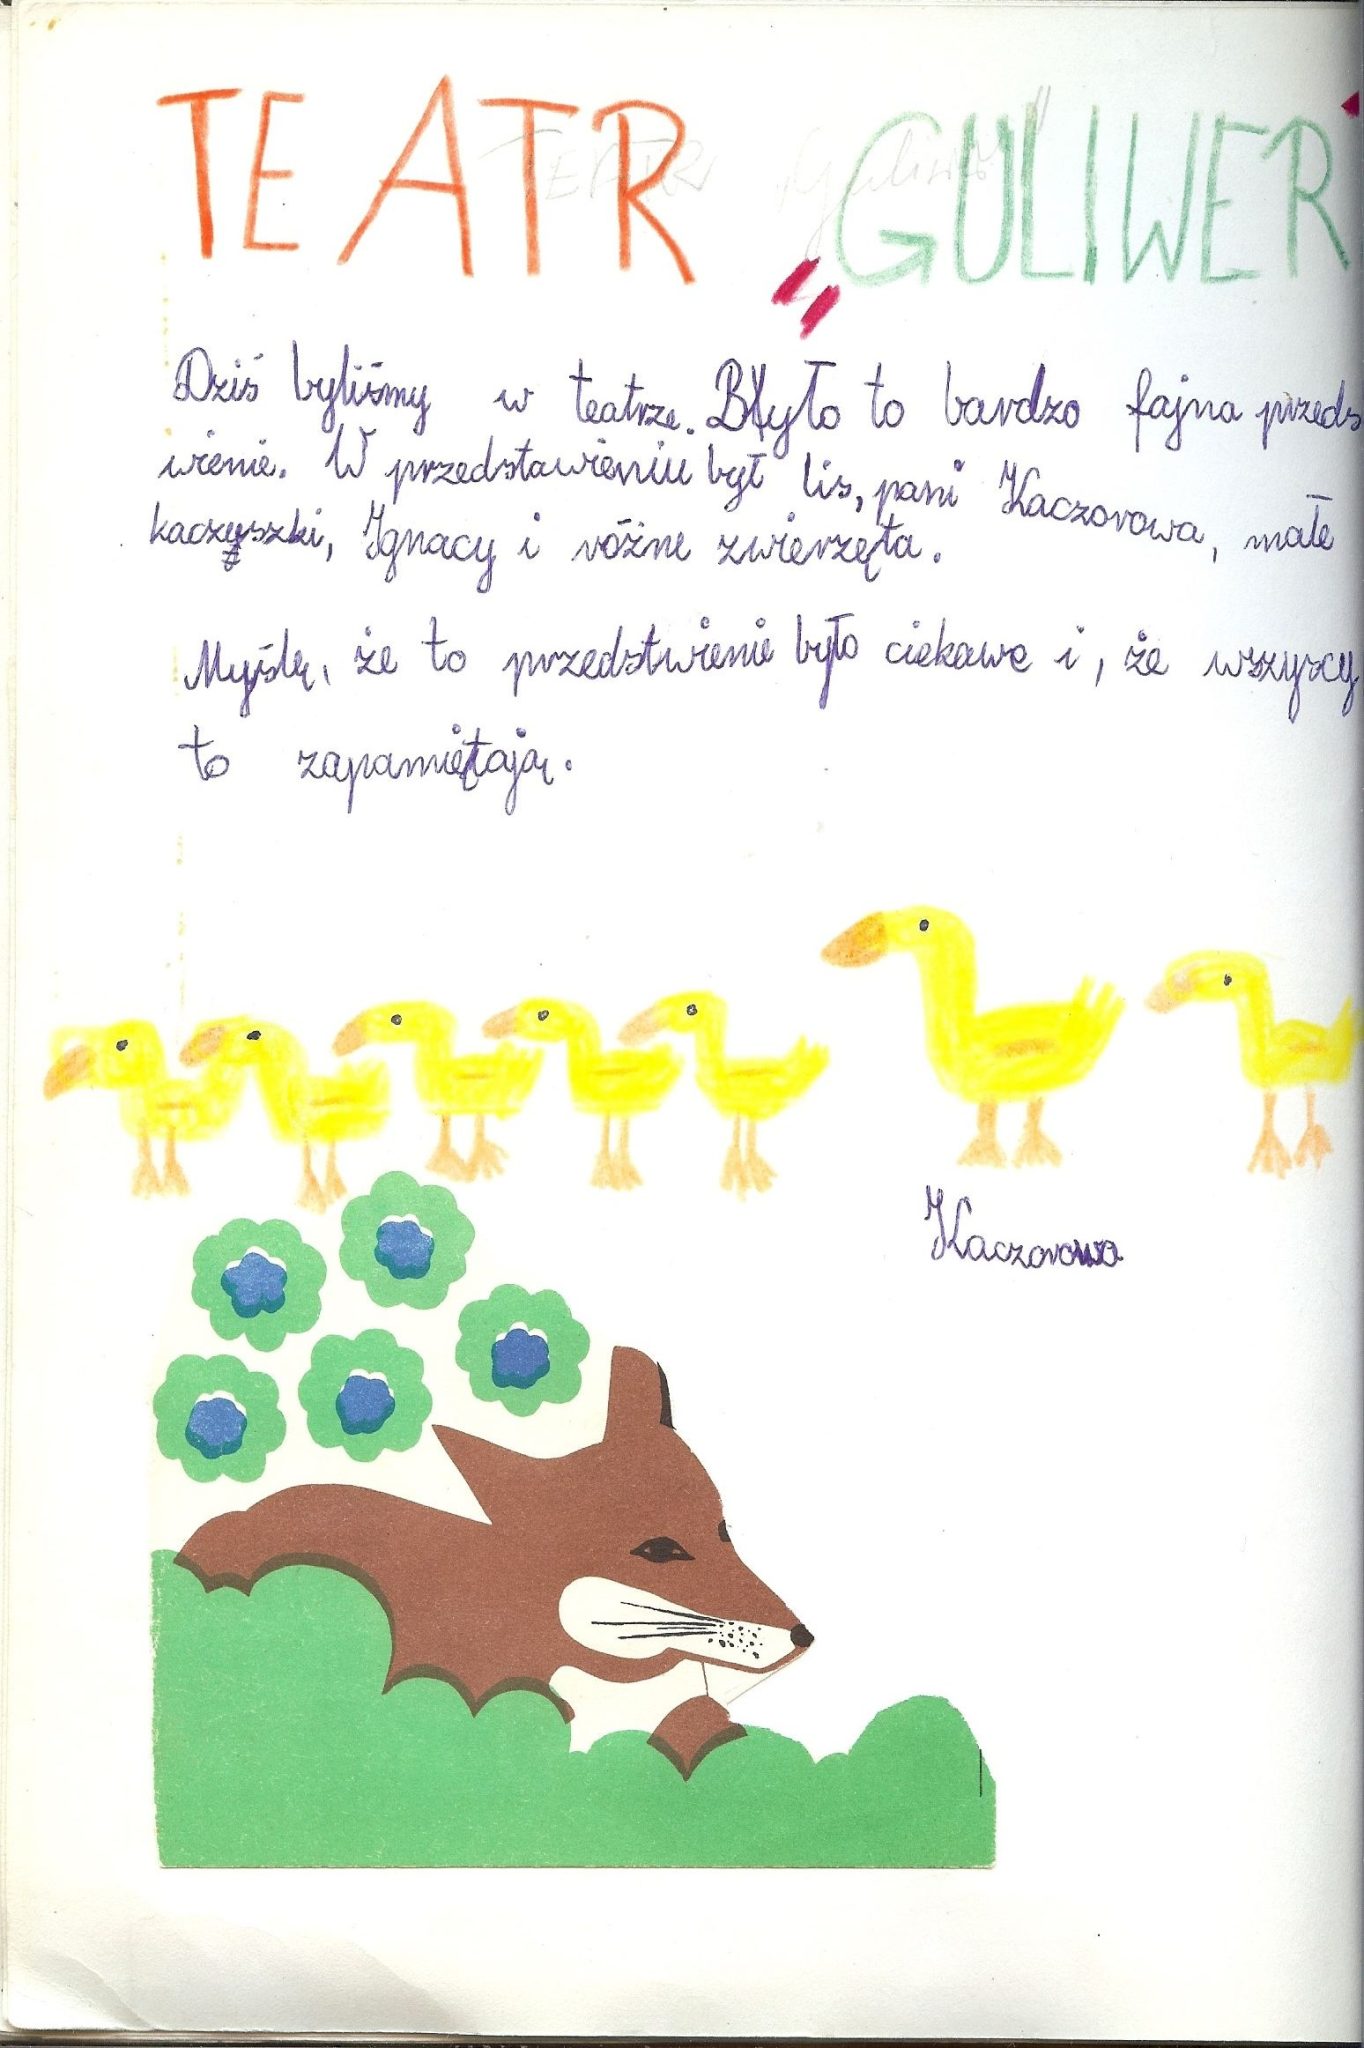 TEATR „GULIWER"
Dziś byliśmy w teatrze. Było to bardzo fajna przeds
wienie. W przedstawieniu był lis, pani Kaczorowa, małe
kaczuszki, Ignacy i różne zwierzęta.
Myślę, że to przedstwienie było ciekawe i, że wszyscy
to zapamiętają.
Kaczorowa